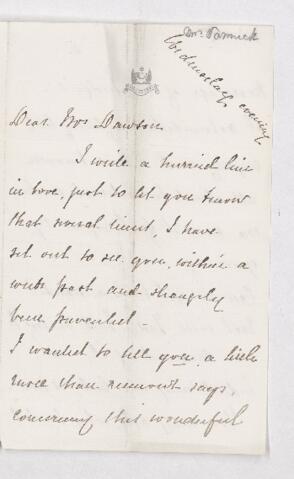 Mrs. Pannick
Wednesday evening
Dear Mrs Dawson
I write a hurried line
in love, just to let you know
that several times, I have
set out to see you, within a
week past and strangely
been prevented -
I wanted to tell you a little
more than rumour says,
concerning this wonderful